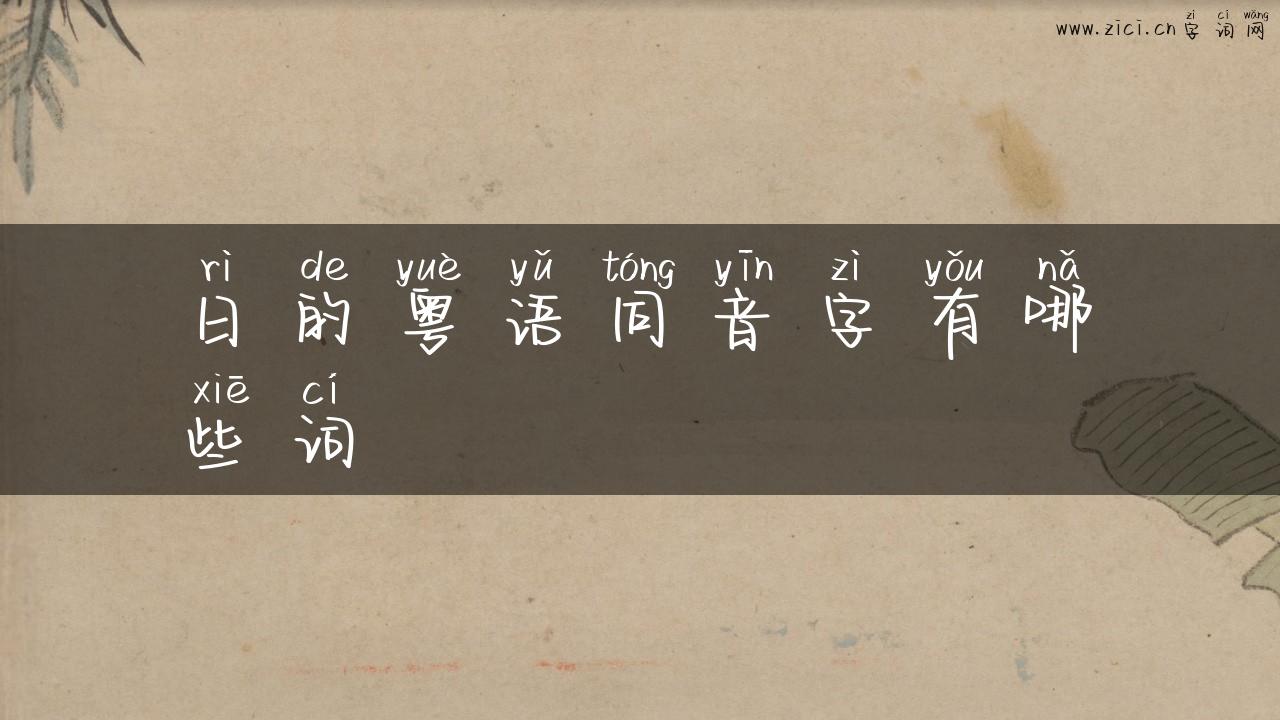 zì cí wǎng
www.zici.cn 字词网
rì de yuè yǔ tóng yīn zì yǒu nǎ
日的粤语同音字有哪
xiē cí
些词